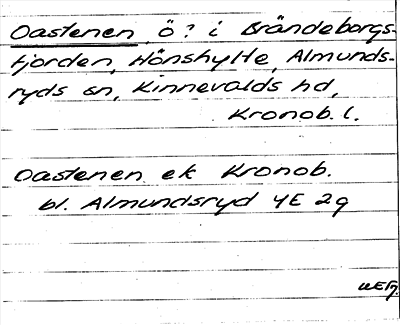 Oastenen, Ö? i Brändeborgs-
fjorden, Hönshylte, Almunds-
ryds sn, Kinnevalds hd,
Kronob. l.
Oastenen ek Kronob.
bl. Almundsryd 4E 2g